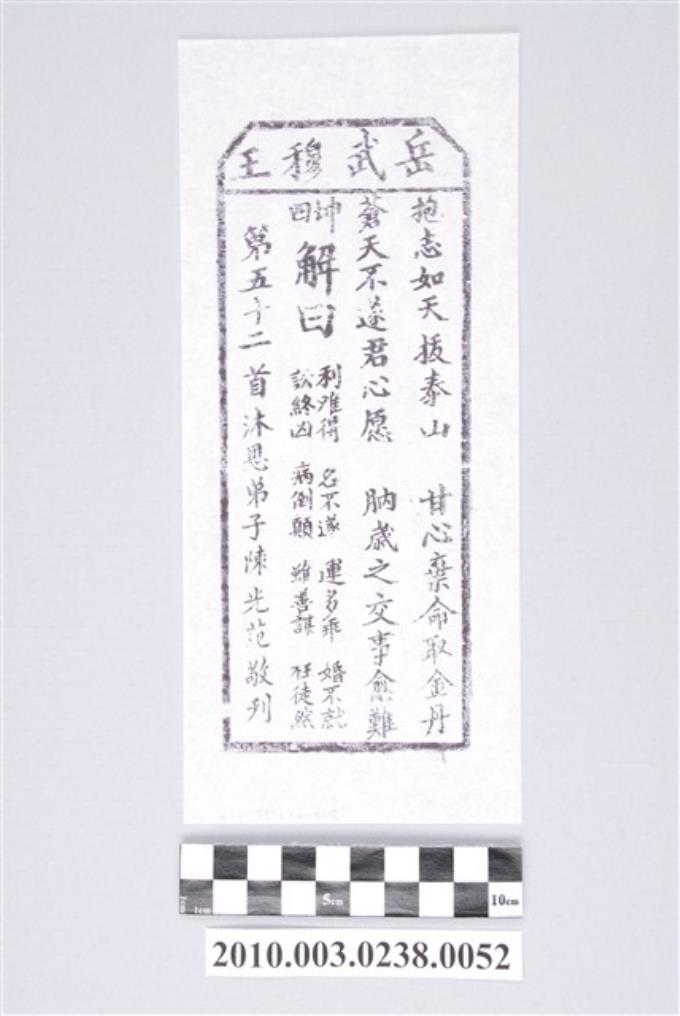 岳武穆王
抱志如天拔泰山 甘心棄命取金丹
蒼天不遂君心愿 肭歲之交事愈難
坤四
解曰
利难得 名不遂 運多乖 婚不就
訟終凶 病倒顛 雖善謀 枉徒然
第五十二首沐恩弟子陳光范敬刋
5cm
10cm
2010.003.0238.0052